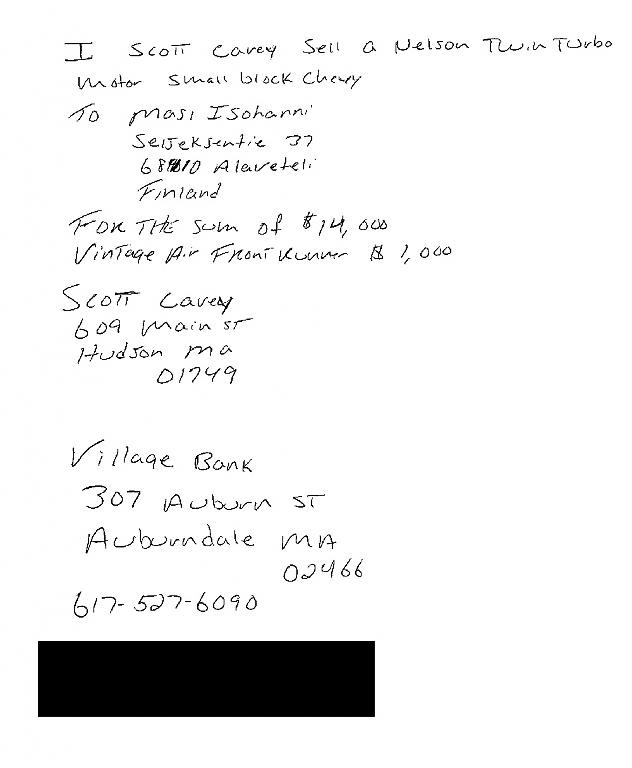 I Scott Carey Sell a Nelson Twin Turbo
Motor Small block Chevy
To Masi Isohanni
Seljeksentie 37
68410 Alaveteli
Finland
FOR THE sum of $14,000
Vintage Air Front Runner $ 1,000
Scott Carey
609 Main ST
Hudson MA
01749
Village Bank
307 Auburn ST
Auburndale MA
02466
617-527-6090